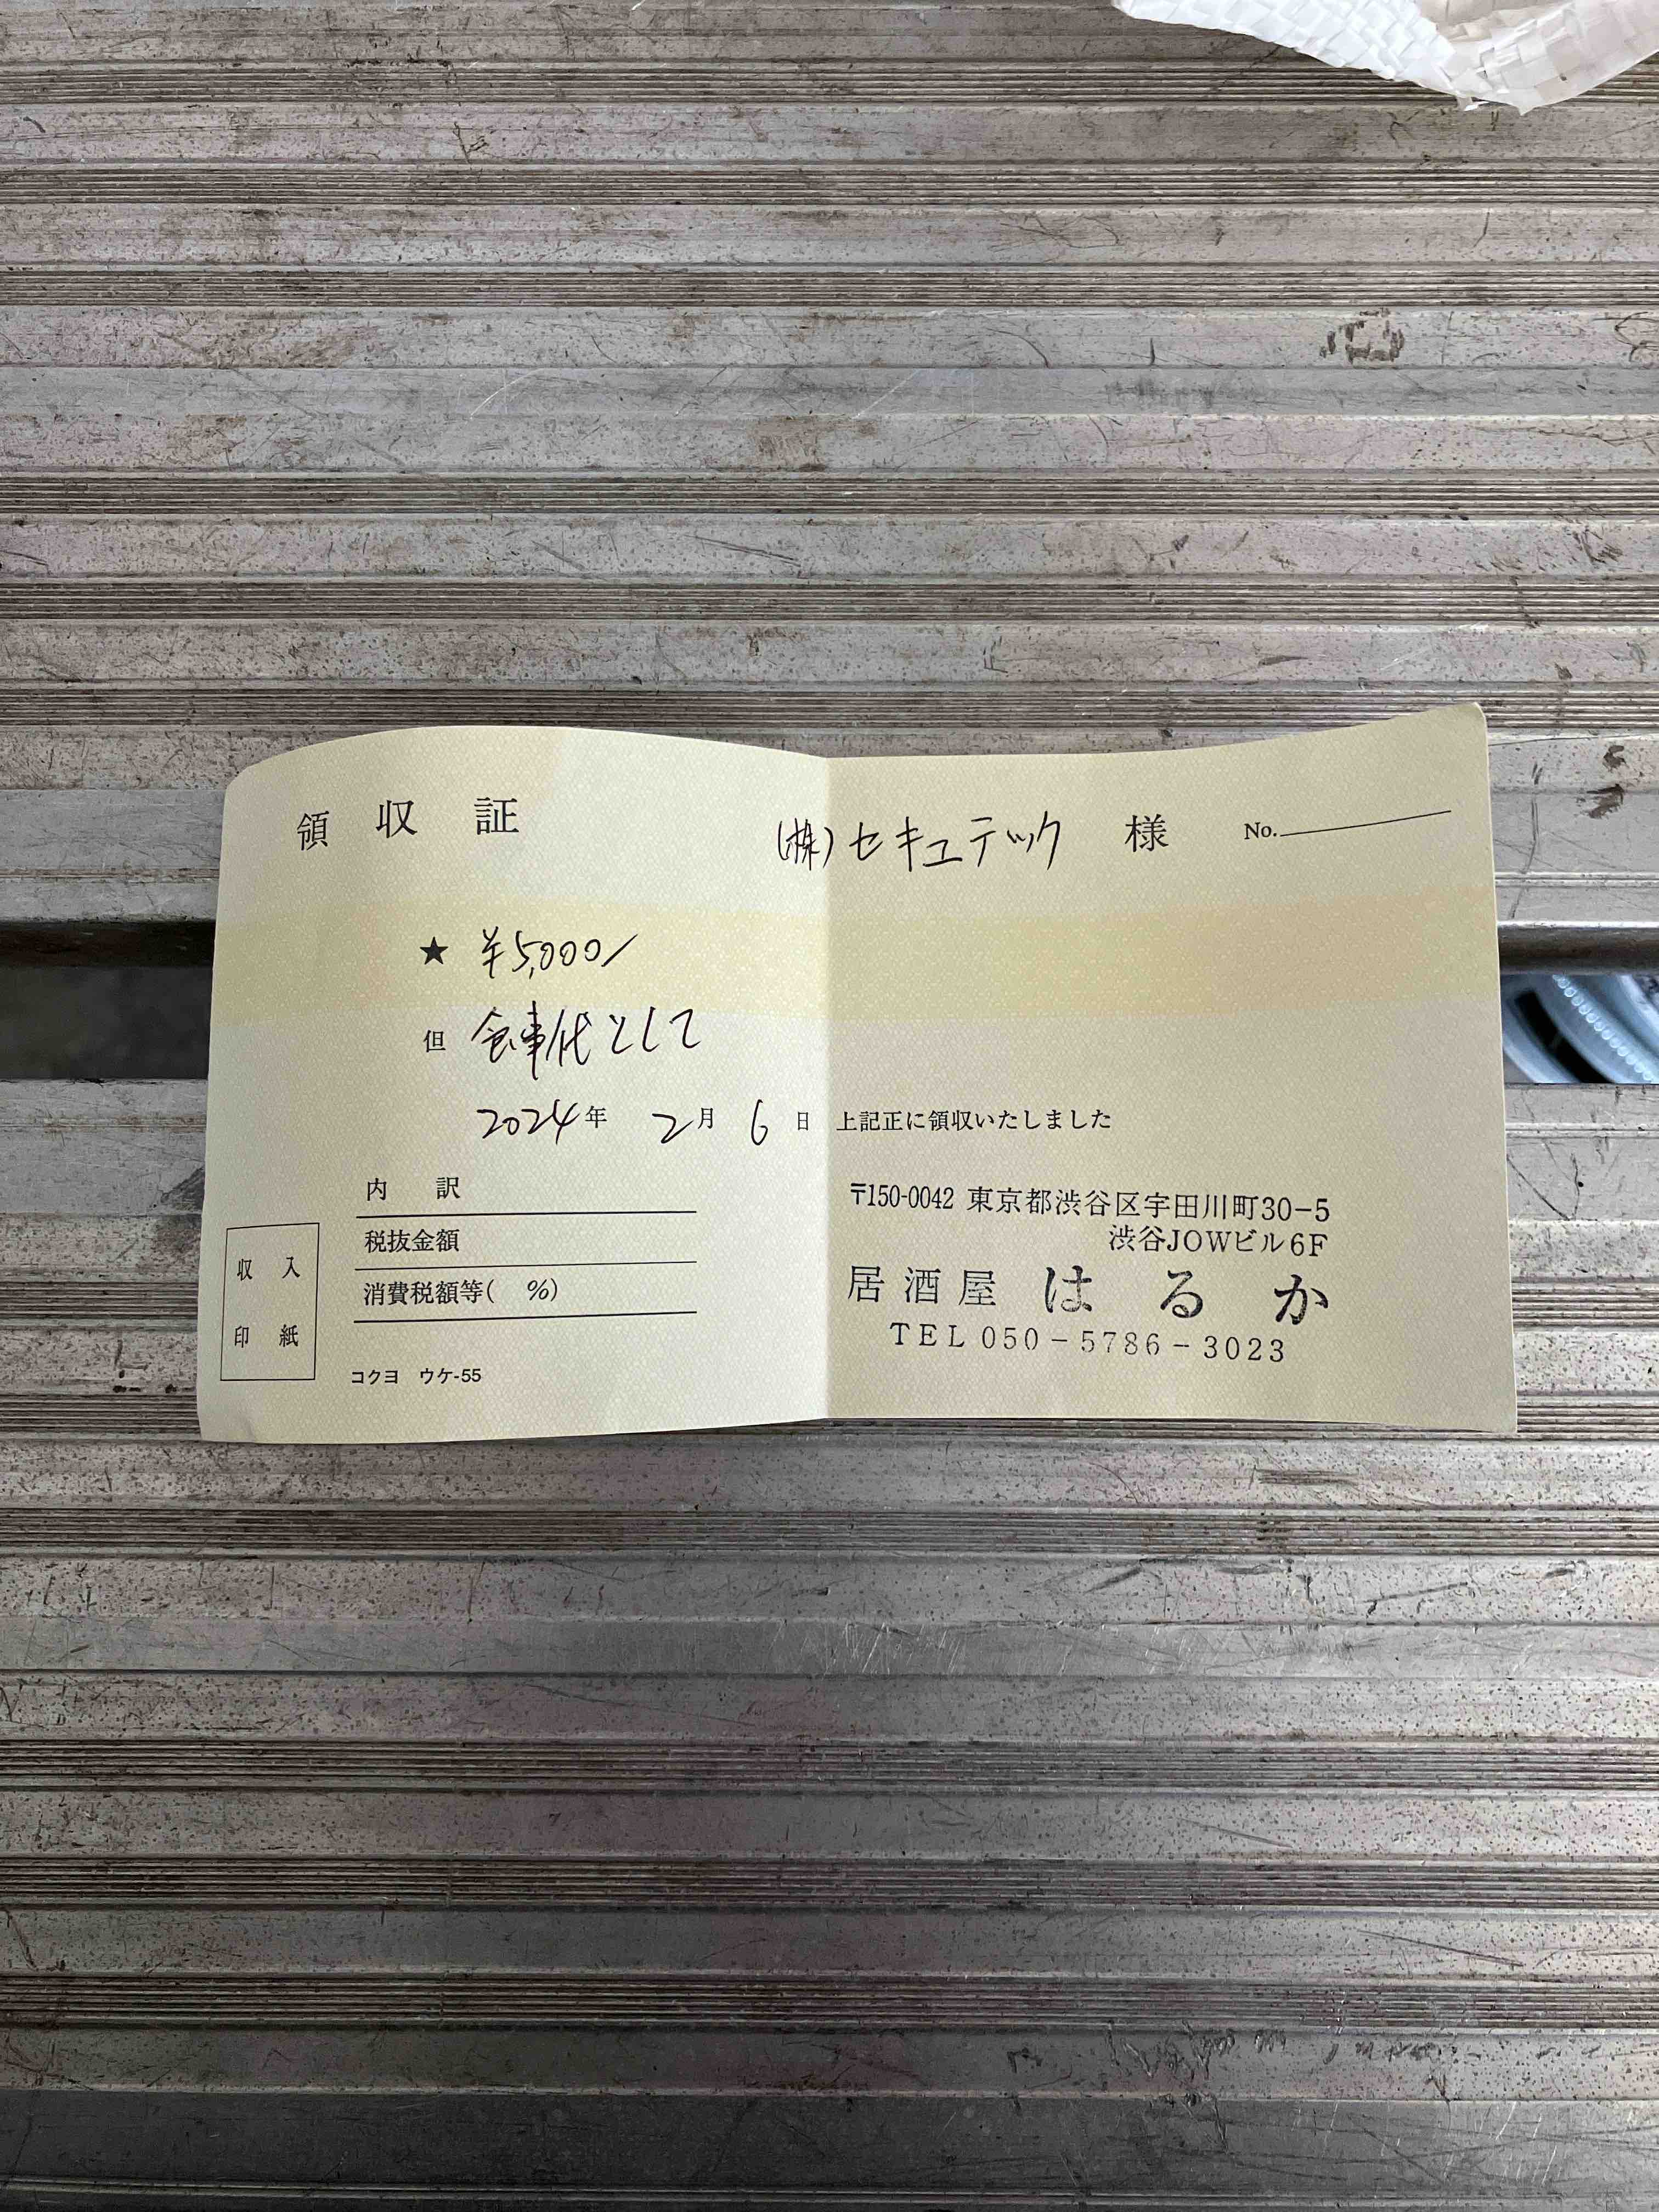 領収証
(株)セキュテック 様 No.
★ ¥5,000/
但 食事代として
2024年 2月 6日 上記正に領収いたしました
内訳
税抜金額
消費税額等( %)
収入
印紙
コクヨ ウケ-55
〒150-0042 東京都渋谷区宇田川町30-5
渋谷JOWビル6F
居酒屋 はるか
TEL 050-5786-3023